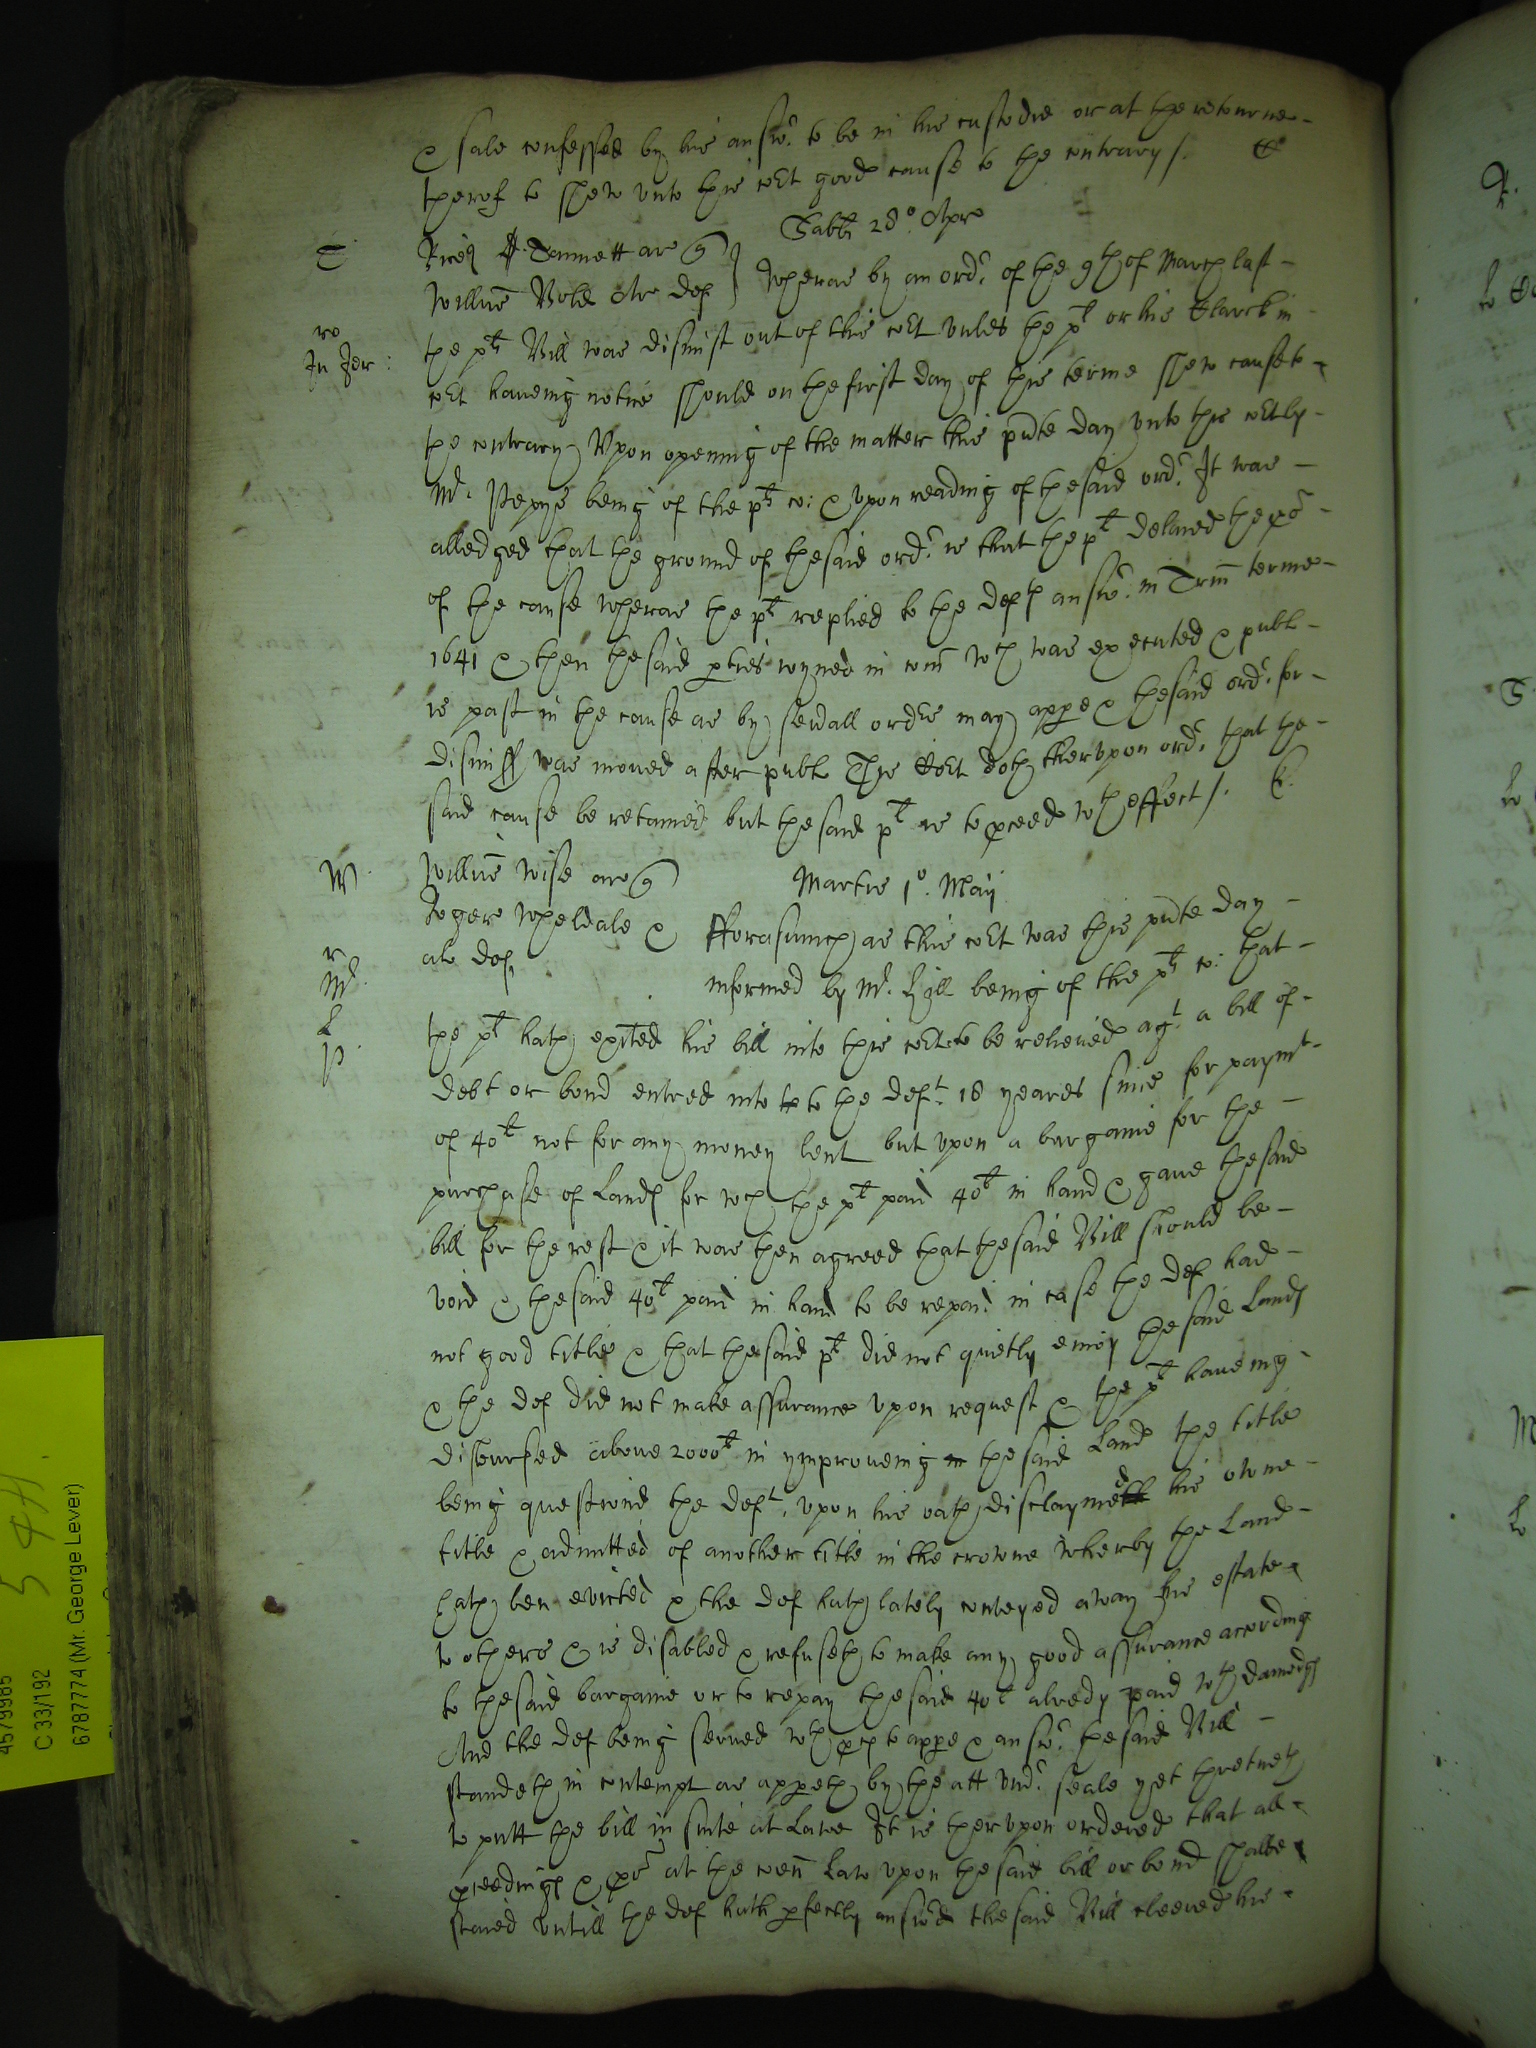 & sale confessed by his answ.r to be in his custodie or at the retourne
therof to shew unto this cort good cause to the contrary /.
Sabbti 28o. Apr
T
Ric'd Tommett ar q
Willm Bold Ar def } Wheras by an ord.r of the 9th of March last
ro
In Jer:
the plts Bill was dismist out of this cort unles the plt or his Clarck in
cort haveing notice should on the first day of this terme shew cause to
the contrary Upon opening of the matter this pnte day unto this cort by
Mr. Pepys being of the plts co: & upon reading of the said ord.r It was
alledged that the ground of the said ord.r is that the plt delaied the ps
of the cause wheras the plt replied to the defts answ.r in Trin terme
1641 & then the said pties joyned in com wch was executed & publ
is past in the cause as by sevall ordrs may appe & the said ord.r for
dismiss was moved after publ The Cort doth therupon ord.r that the
said cause be retained but the said plt is to pceed wth effect /.
W
Willm Wise ar q
Martis 1o. Maij
Roger Wheldale &
al def
r
Md.
L
P
Fforasmuch as this cort was this pnte day
informed by Mr. Hill being of the plts co: that
the plt hath exited his bill into this cort to be relieved agt a bill of
debt or bond entred into to the deft. 18 yeares since for paymt
of 40l not for any money lent but upon a bargaine for the
purchase of Lands for wch the plt paid 40l in hand & gave the said
bill for the rest & it was then agreed that the said Bill should be
void & the said 40l paid in hand to be repaid in case the def had
not good title & that the said plt did not quietly enioy the said Lands
& the def did not make assurance upon request & the plt haveing
disbursed above 2000l in ymproveing the said Land the title
being questiond the deft. upon his oath disclaymed his owne
title & admitted of another title in the crowne wherby the Land
hath ben evicted & the def hath lately conveyed away his estate
to others & is disabled & refuseth to make any good assurance according
to the said bargaine or to repay the said 40l alredy paid wth damedgs
And the def being served wth pces to appe & answ.r the said Bill
standeth in contempt as appeth by the att und.r seale yet thretneth
to putt the bill in suite at Lawe It is therupon ordered that all
pceedings & ps at the coen Law upon the said bill or bond shalbe
staied untill the def hath pfectly answ.rd the said Bill cleered his
4579985
C 33/192
6787774 (Mr. George Lever)